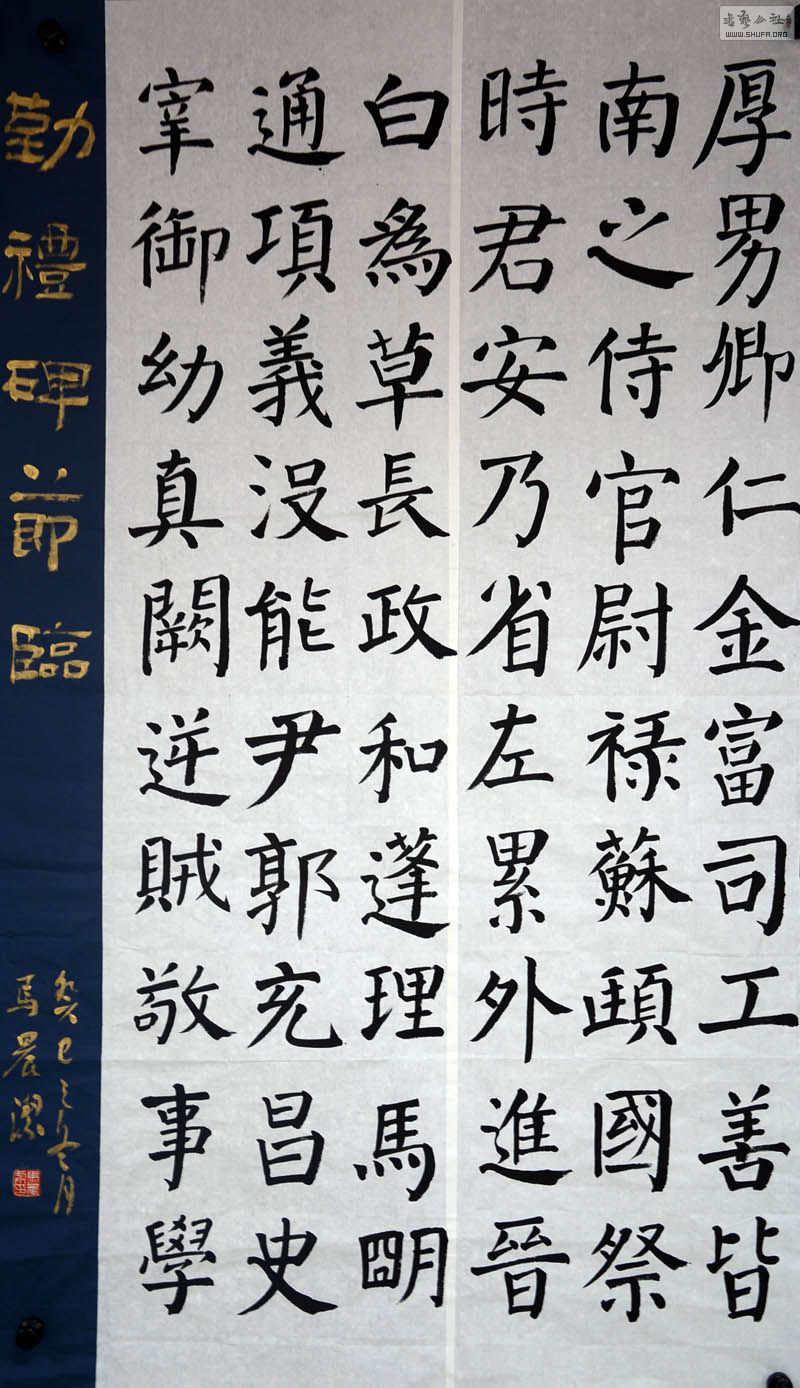 厚男卿仁金富司工善皆
南之侍官尉禄蘇頲國祭
時君安乃省左累外進晉
白爲草長政和蓬理馬明
通項義没能尹郭充昌史
宰御幼真闕逆賊敬事學
勤禮碑節臨
癸巳之冬月
馬晨潔
書藝公社
WWW.SHUFA.ORG